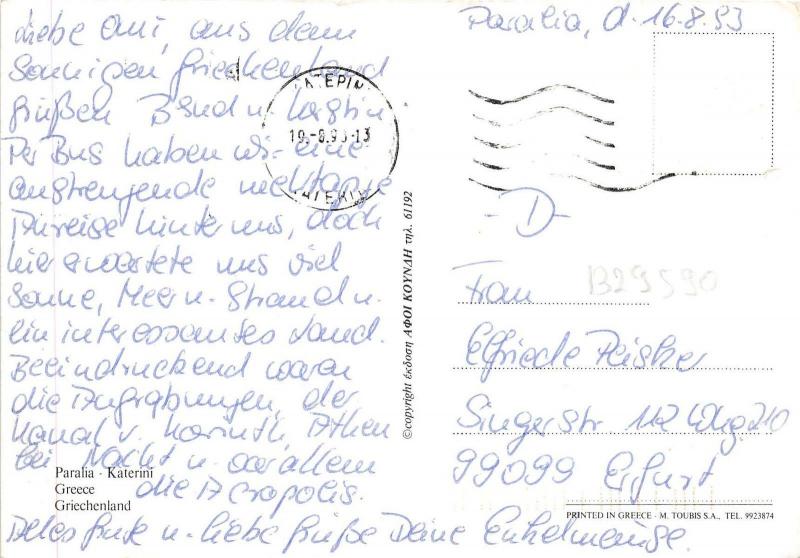 Paralia, d. 16.8.93
Liebe Omi, aus dem
sonnigen Griechenland
grüßen Bernd u. Kerstin.
Per Bus haben wir eine
anstrengende mehrtägige
Anreise hinter uns, doch
hier erwartete uns viel
Sonne, Meer u. Strand u.
ein interessantes Land.
Beeindruckend waren
die Ausgrabungen, der
Kanal v. Korinth, Athen
bei Nacht u. vor allem
die Acropolis.
Alles Gute u. liebe Grüße Deine Enkel
Paralia - Katerini
Greece
Griechenland
19.-8.93-13
©copyright έκδοση ΑΦΟΙ ΚΟΥΝΔΗ τηλ. 61192
-D-
Frau
B29590
Elfriede
Singerstr. 112 Whg. 210
99099 Erfurt
PRINTED IN GREECE - M. TOUBIS S.A., TEL. 9923874